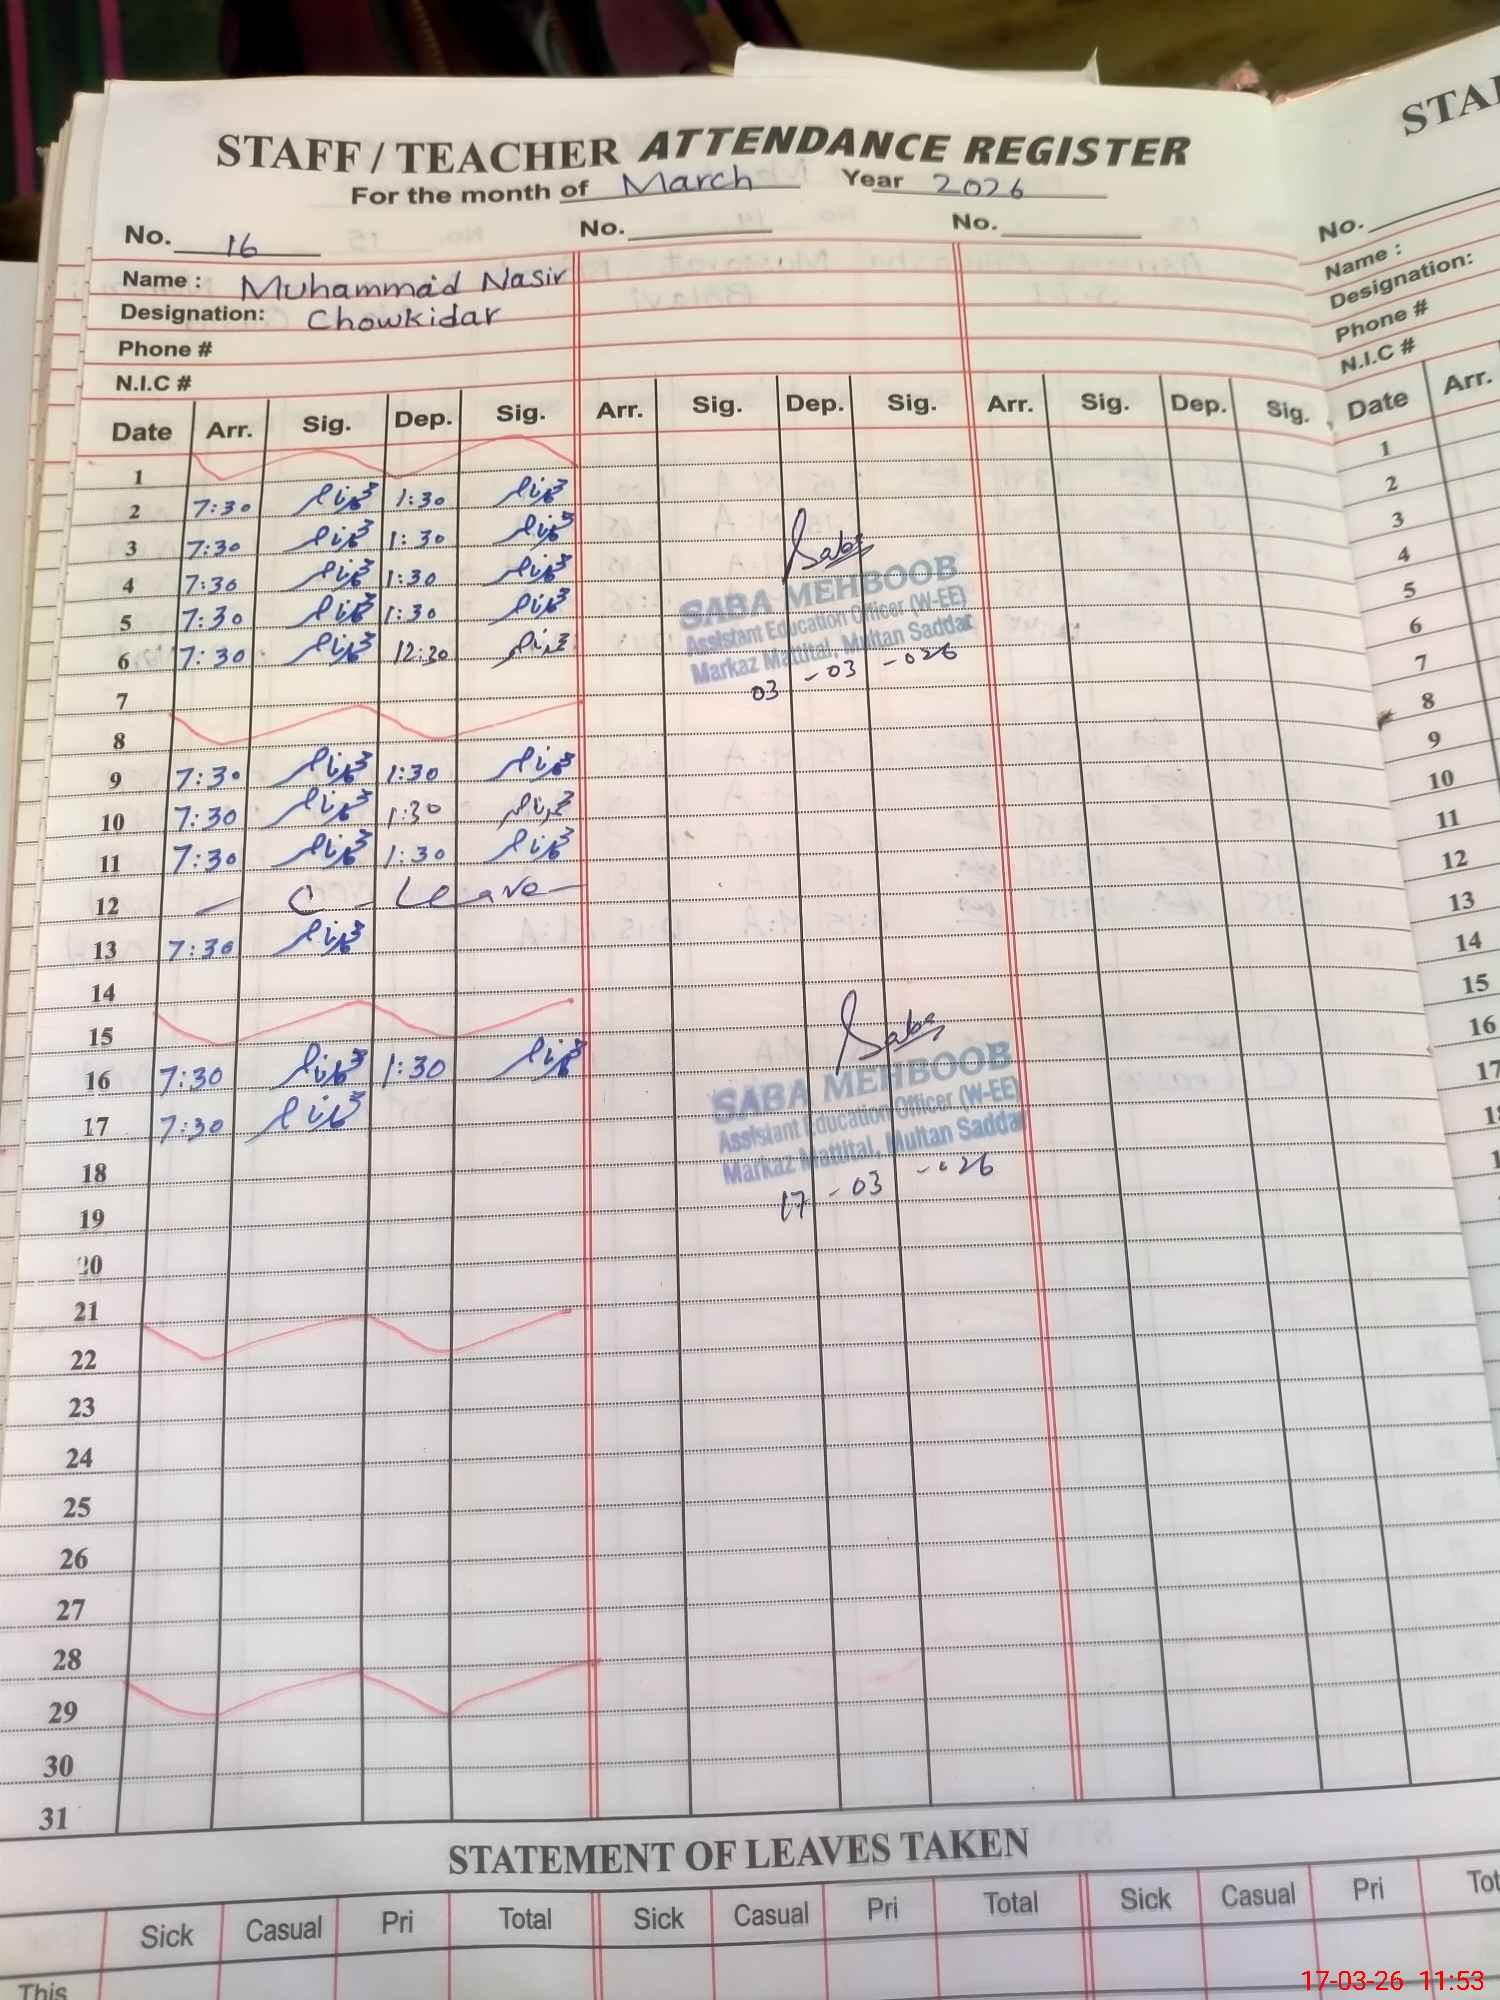 STAFF / TEACHER ATTENDANCE REGISTER
For the month of March Year 2026
No. 16 No. No.
Name : Muhammad Nasir
Designation: Chowkidar
Phone #
N.I.C #
Date Arr. Sig. Dep. Sig. Arr. Sig. Dep. Sig. Arr. Sig. Dep. Sig.
1
2 7:30 محمد ناصر 1:30 محمد ناصر
3 7:30 محمد ناصر 1:30 محمد ناصر
4 7:30 محمد ناصر 1:30 محمد ناصر
5 7:30 محمد ناصر 1:30 محمد ناصر
6 7:30 محمد ناصر 12:30 محمد ناصر
7
8
9 7:30 محمد ناصر 1:30 محمد ناصر
10 7:30 محمد ناصر 1:30 محمد ناصر
11 7:30 محمد ناصر 1:30 محمد ناصر
12 — C - Leave —
13 7:30 محمد ناصر
14
15
16 7:30 محمد ناصر 1:30 محمد ناصر
17 7:30 محمد ناصر
18
19
20
21
22
23
24
25
26
27
28
29
30
31
Saba
SABA MEHBOOB
Assistant Education Officer (W-EE)
Markaz Mattital, Multan Saddar
03 - 03 - 026
Saba
SABA MEHBOOB
Assistant Education Officer (W-EE)
Markaz Mattital, Multan Saddar
17 - 03 - 026
STATEMENT OF LEAVES TAKEN
Sick Casual Pri Total Sick Casual Pri Total Sick Casual Pri Tot
This
STA
No.
Name :
Designation:
Phone #
N.I.C #
Date Arr.
1
2
3
4
5
6
7
8
9
10
11
12
13
14
15
16
17
17-03-26 11:53